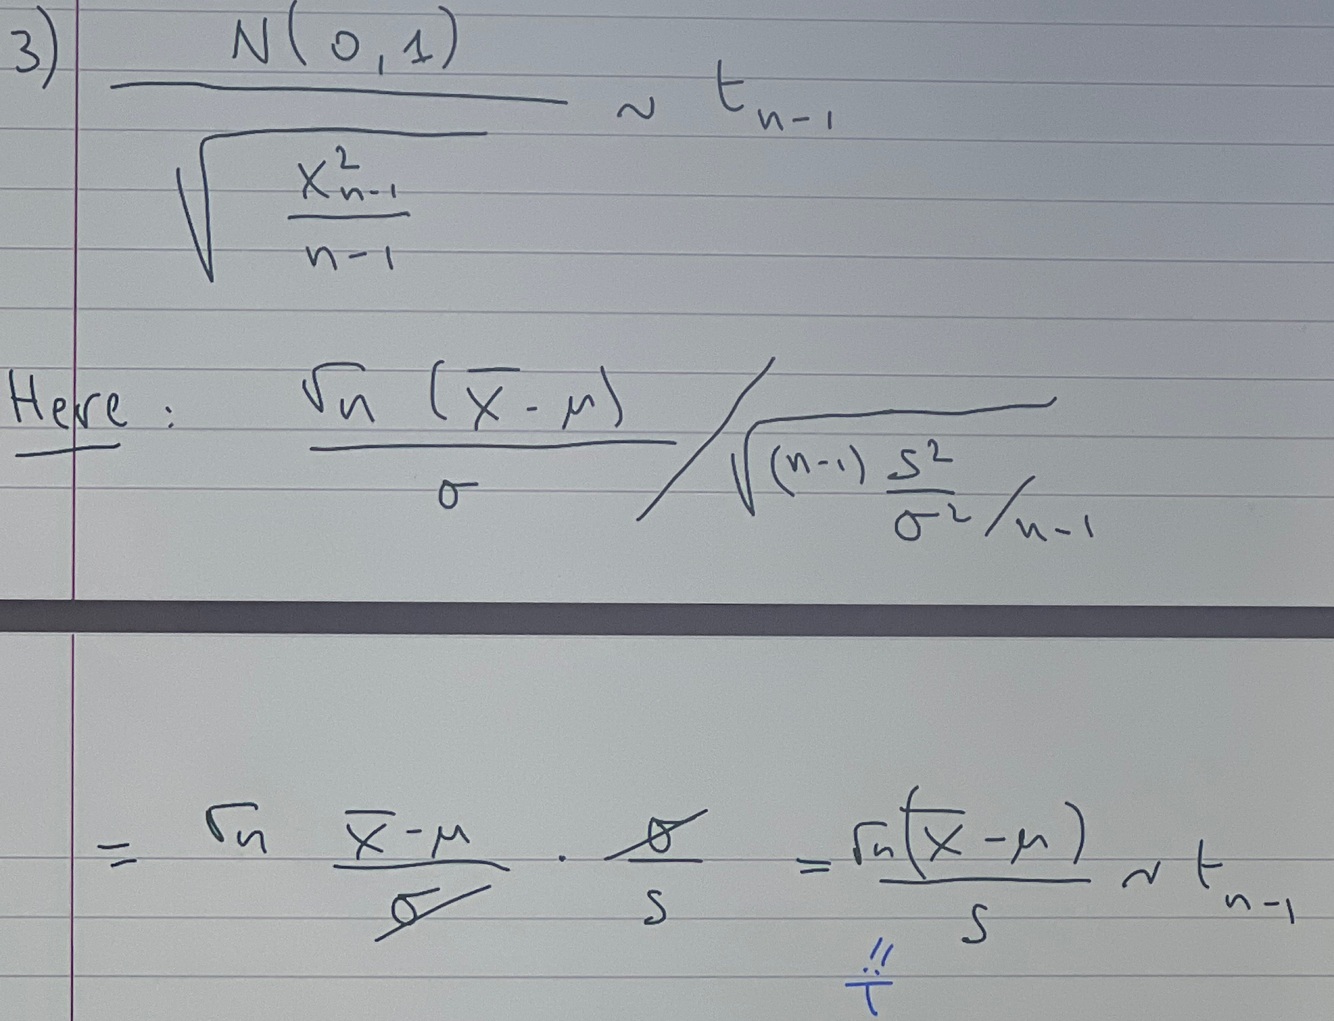 3) N(0,1) / √(χ²ₙ₋₁ / n-1) ~ tₙ₋₁
Here: √n (X̄ - μ) / σ / √((n-1) S²/σ² / n-1)
= √n (X̄ - μ)/σ · σ/S = √n (X̄ - μ)/S ~ tₙ₋₁
!!
T